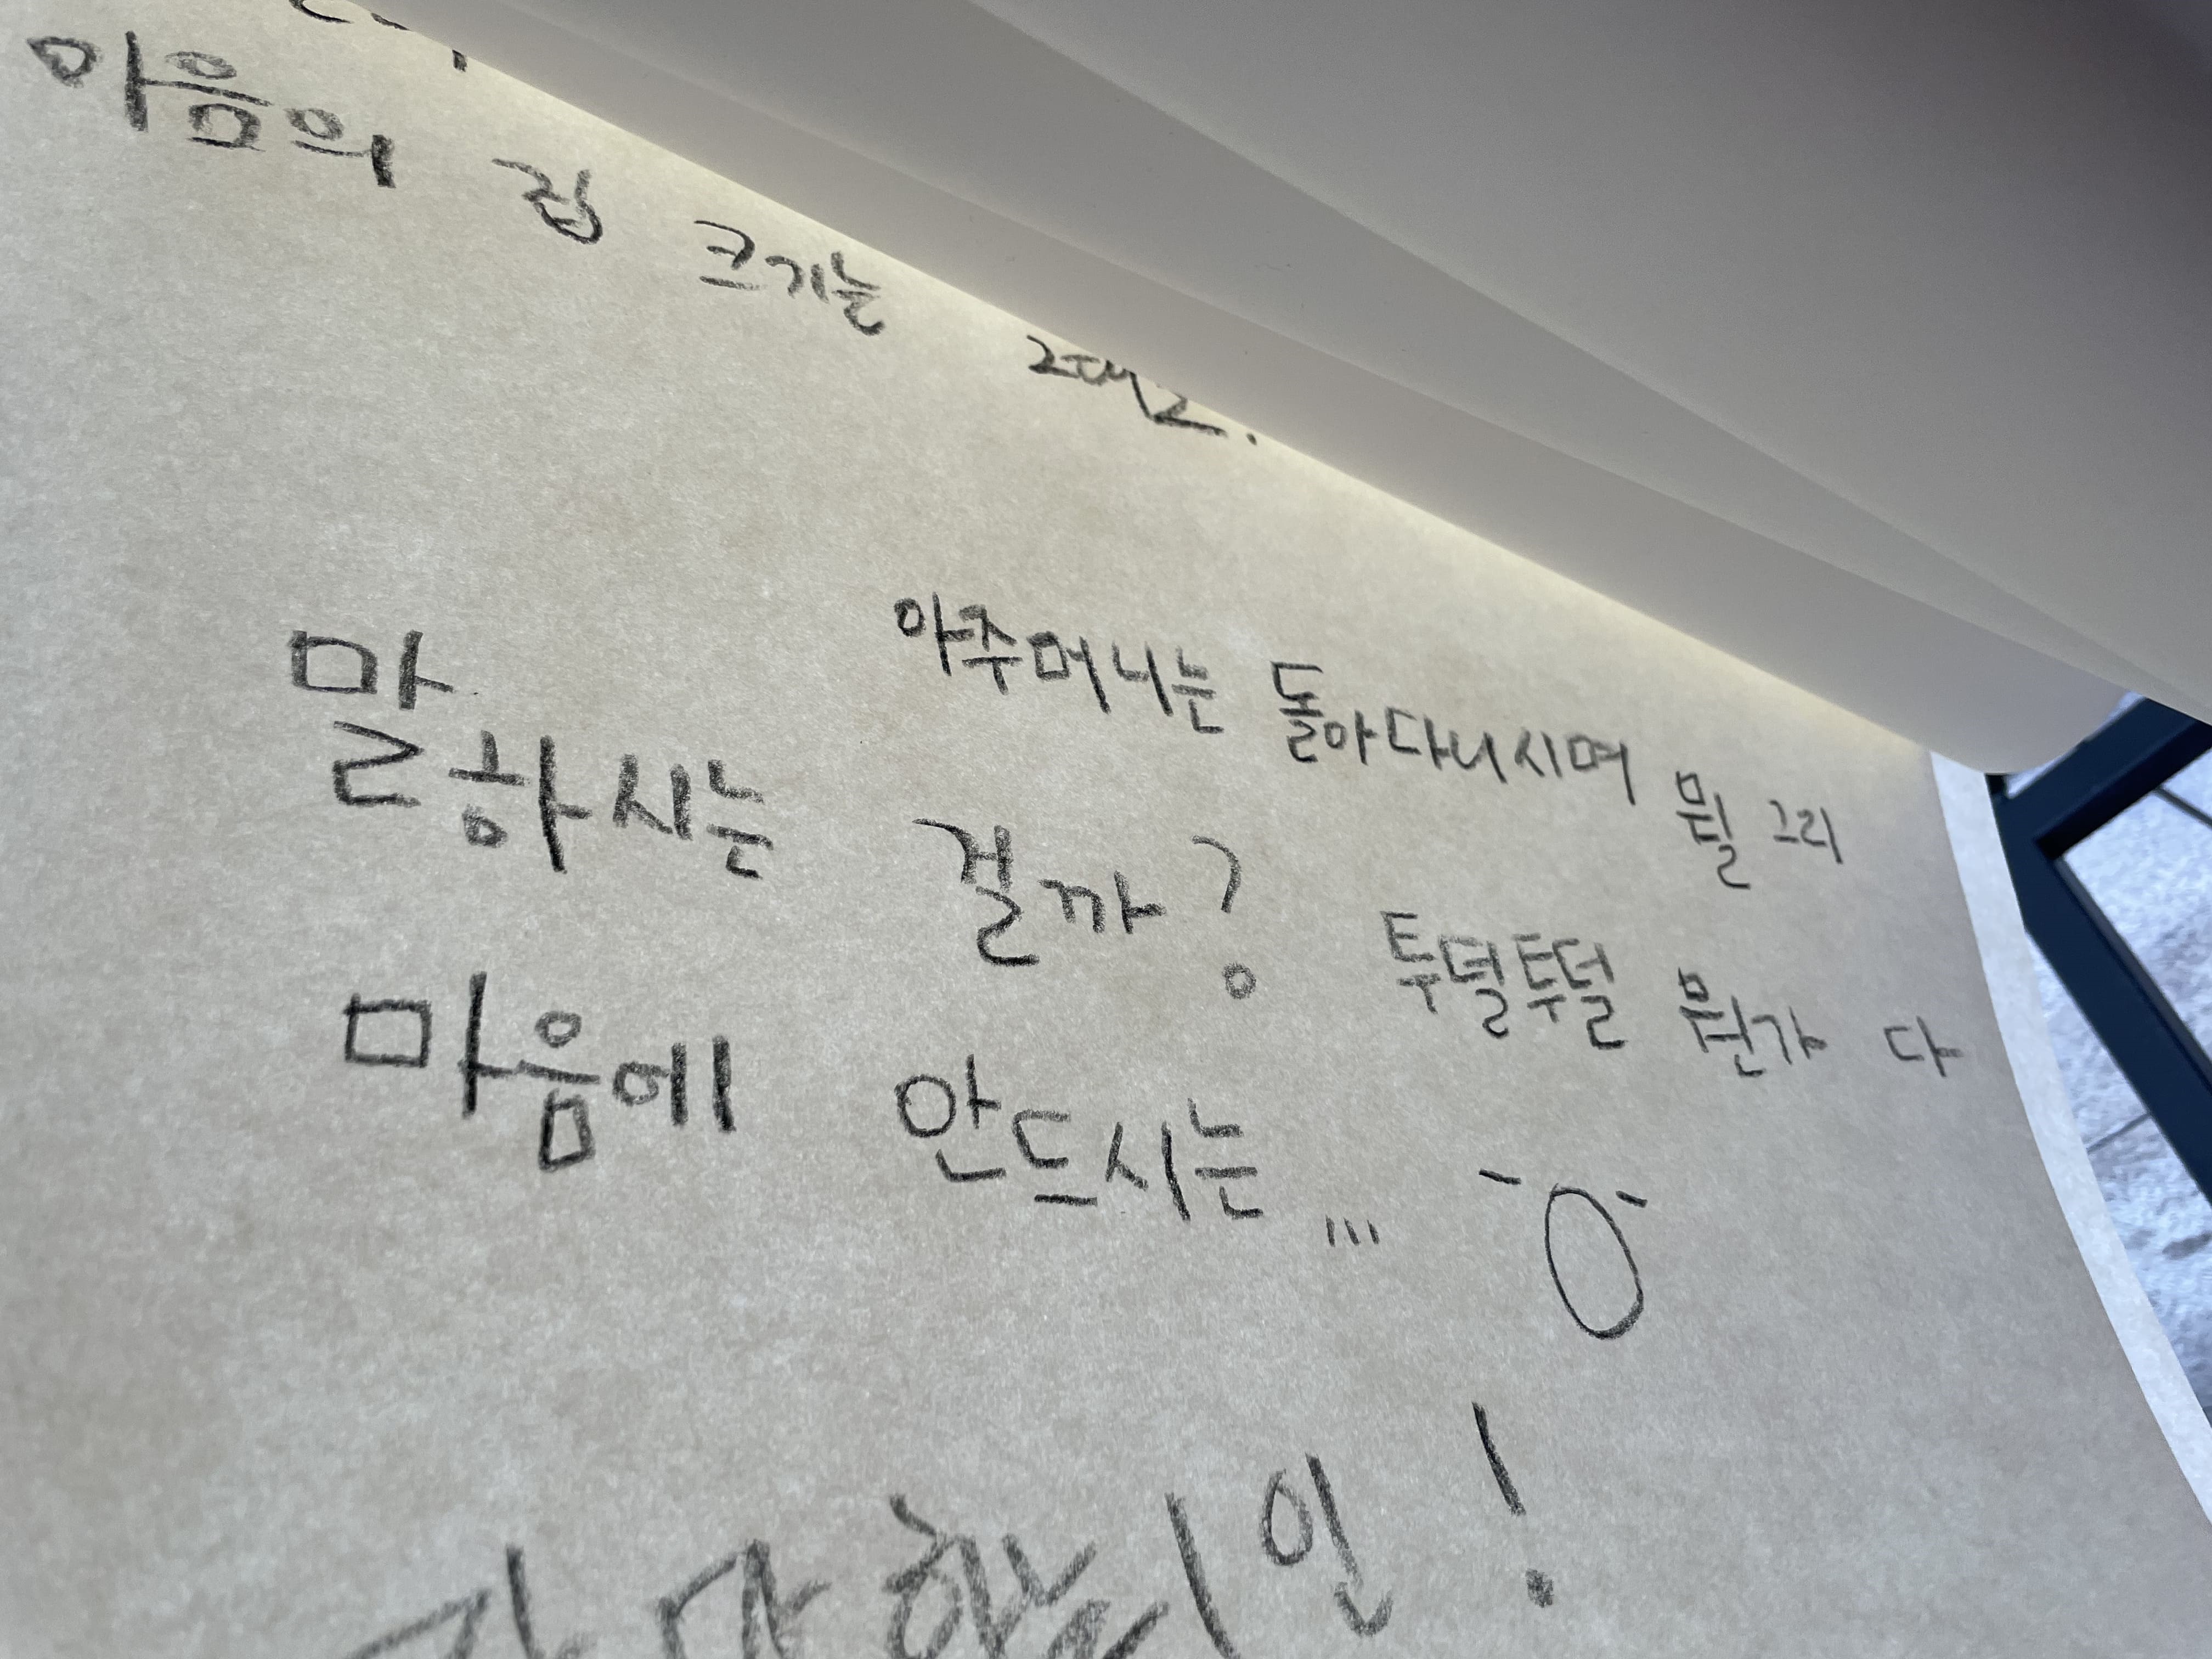 마음의 컵 크기는
아주머니는 돌아다니시며 뭘 그리
말하시는 걸까?
투덜투덜 뭔가 다
마음에 안드시는...
일!